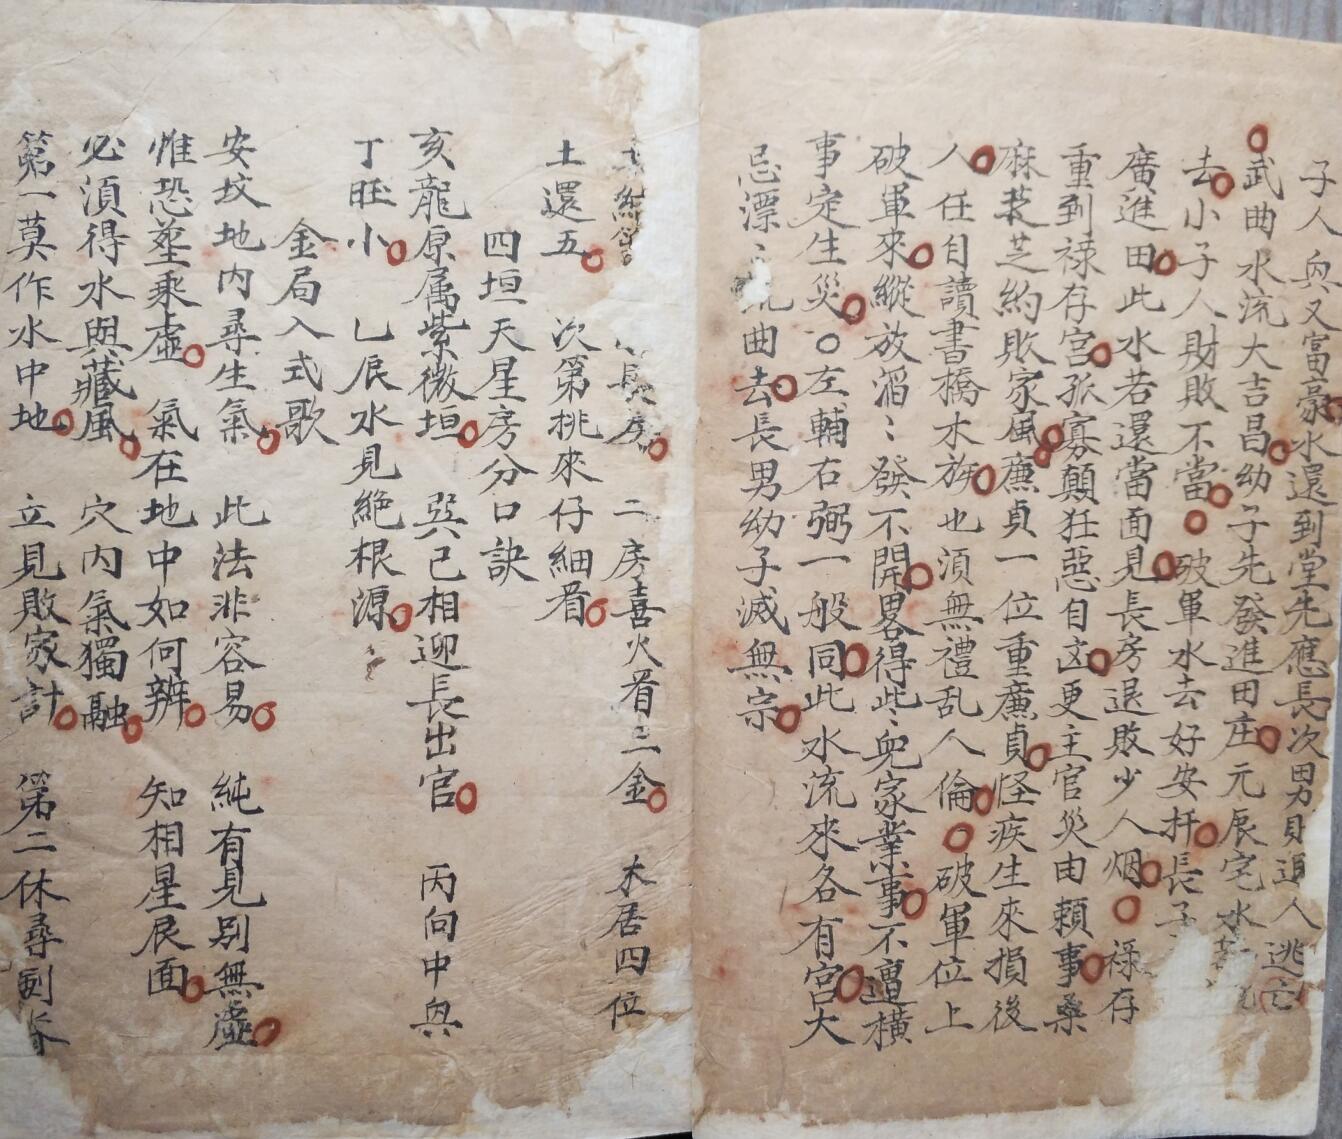 子人兴又富豪水還到堂先應長次男財退人逃亡
武曲水流大吉昌幼子先發進田庄元辰宅水若
去小子人財敗不當 破軍水去好安扦長子
廣進田此水若還當面見長房退敗少人烟 禄存
重到禄存宫孤寡顛狂惡自這更主官災由頼事桑
麻裁芝約敗家風廉貞一位重廉貞怪疾生來損後
人 任自讀書橋木族也須無禮乱人倫 破軍位上
破軍來縱放滔〻發不開畧得此〻兇家業事不遭橫
事定生災〇左輔右弼一般同此水流來各有宫大
忌漂〻 曲去長男幼子滅無宗
長房 二房喜火看三金 木居四位
土還五 次第挑來仔細看
四垣天星房分口訣
亥龍原属紫微垣 巽己相迎長出官 丙向中兴
丁旺小 乙辰水見絶根源
金局入式歌
安坟地内尋生氣 此法非容易 純有見别無虚
惟恐塟乘虚 氣在地中如何辨 知相星辰面
必須得水與藏風 穴内氣獨融
第一莫作水中地 立見敗家計 第二休尋劍脊